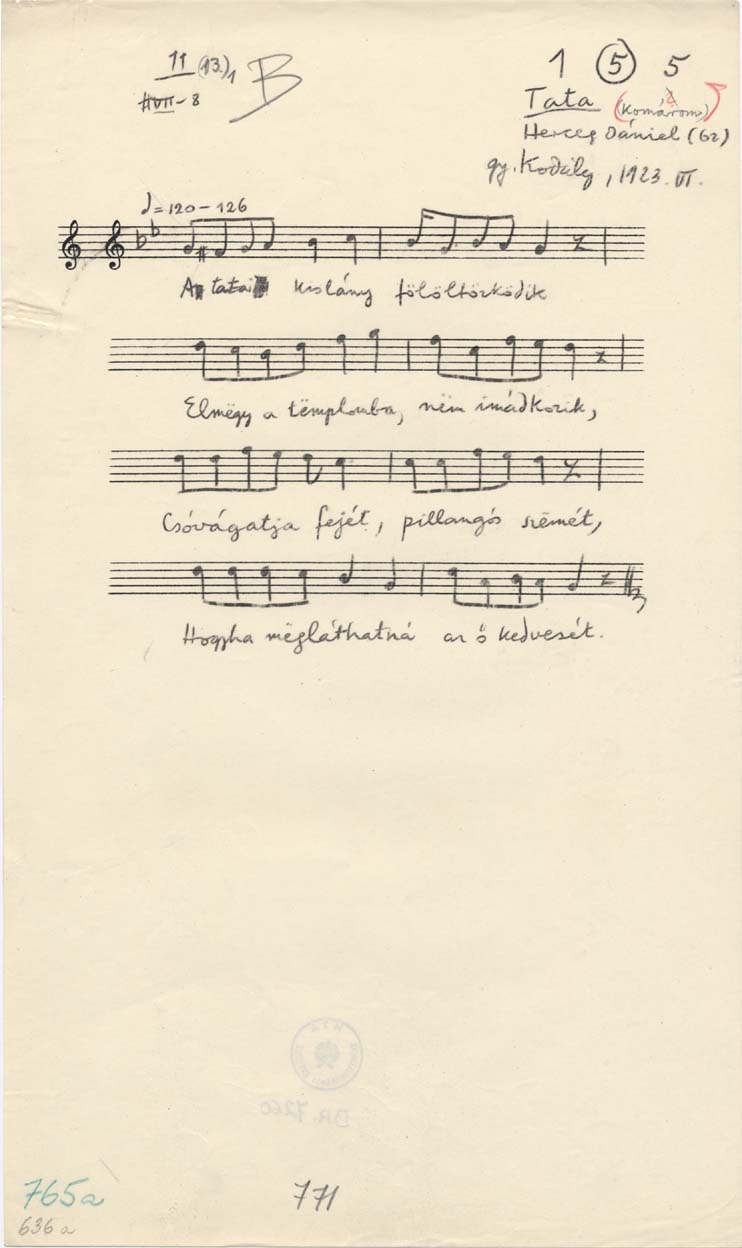 11 (13.)1
B
1 5 5
HVII - 8
Tata (Komárom)
Herceg Dániel (62)
gy. Kodály, 1923. VI.
♩=120-126
A tatai kislány fölöltözködik
Elmëgy a tëmplomba, nëm imádkozik,
Csóvágatja fejét, pillangós szëmét,
Hogyha mëgláthatná az ő kedvesét.
BR. 7260
765a
771
636a